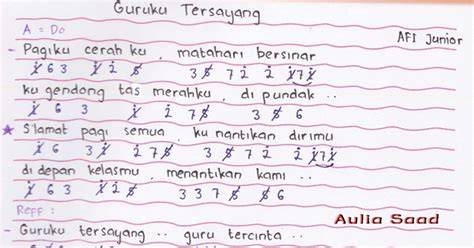 Guruku Tersayang
A = Do
AFI Junior
- Pagiku cerah ku , matahari bersinar
1̸̇ 6 3 1̸̇ 2̇ 5̸ 3 5̸ 7 2̇ 2̇ 1̸̇7 1̸̇
ku gendong tas merahku , di pundak ..
1̸̇ 6 3 1̸̇ 2̇ 7 5̸ 3 5̸ 6
★ S'lamat pagi semua , ku nantikan dirimu
1̸̇ 6 3 1̸̇ 2̇ 7 5̸ 3 5̸ 7 2̇ 2̇ 1̸̇7 1̸̇
di depan kelasmu , menantikan kami ..
1̸̇ 6 3 1̸̇ 2̇ 5̸ 3 3 7 5̸ 6
Reff :
Aulia Saad
- Guruku tersayang .. guru tercinta ..